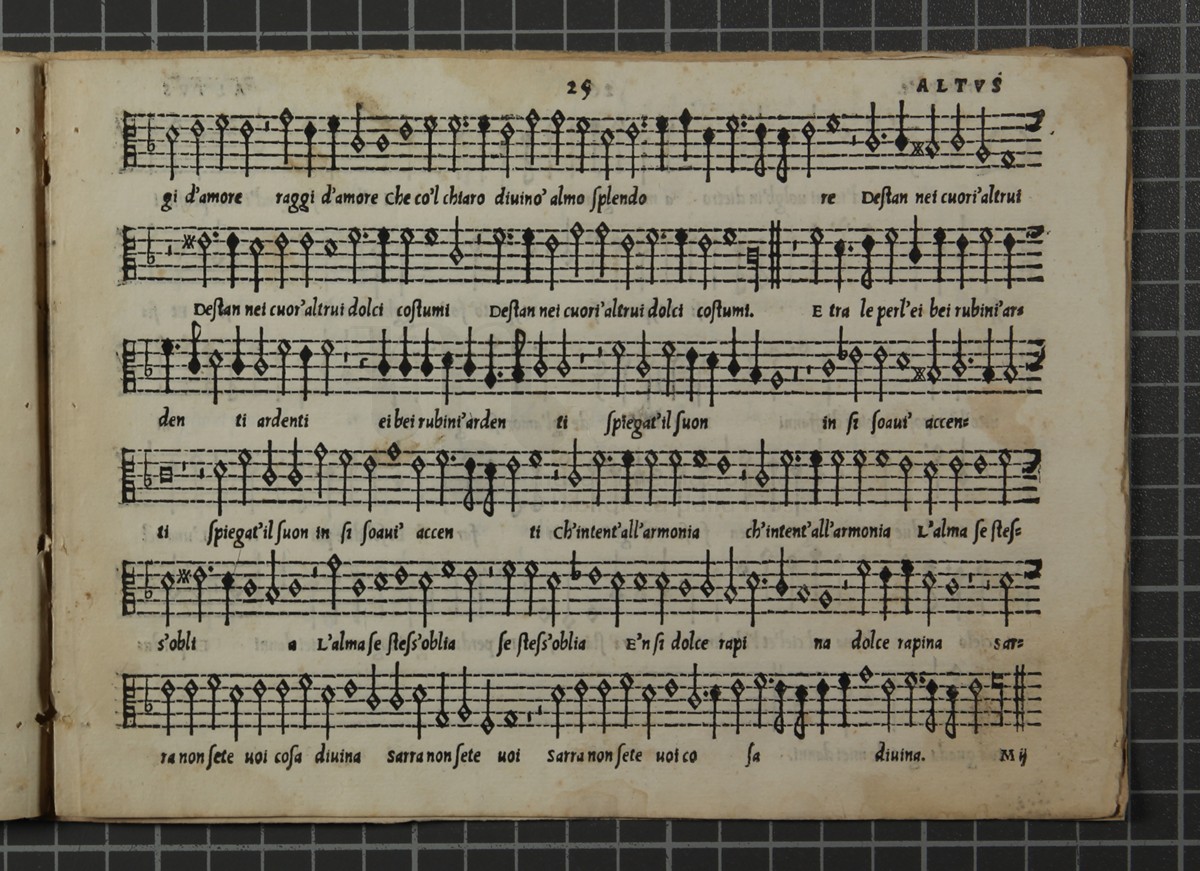 25 ALTVS
gi d'amore raggi d'amore Che co'l chiaro diuino' almo ſplendo re Deſtan nei cuori'altrui
Deſtan nei cuor'altrui dolci coſtumi Deſtan nei cuori'altrui dolci coſtumi. E tra le perl'ei bei rubini'ar=
den ti ardenti ei bei rubini'arden ti ſpiegat'il ſuon in ſi ſoaui' accen=
ti ſpiegat'il ſuon in ſi ſoaui' accen ti Ch'intent'all'armonia ch'intent'all'armonia L'alma ſe ſteſ=
s'obli a L'alma ſe ſteſs'oblia ſe ſteſs'oblia E'n ſi dolce rapi na dolce rapina Sar=
ra non ſete uoi coſa diuina Sarra non ſete uoi Sarra non ſete uoi co ſa diuina. M ij